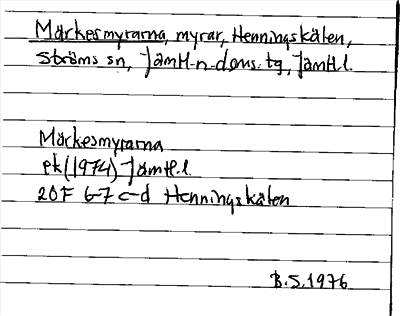 Märkesmyrarna, myrar, Henningskälen,
Ströms sn, Jämtl-n-doms. tg, Jämtl.l.
Märkesmyrarna
ek(1974) Jämtl.l.
20F 6-7 c-d Henningskälen
B.S.1976